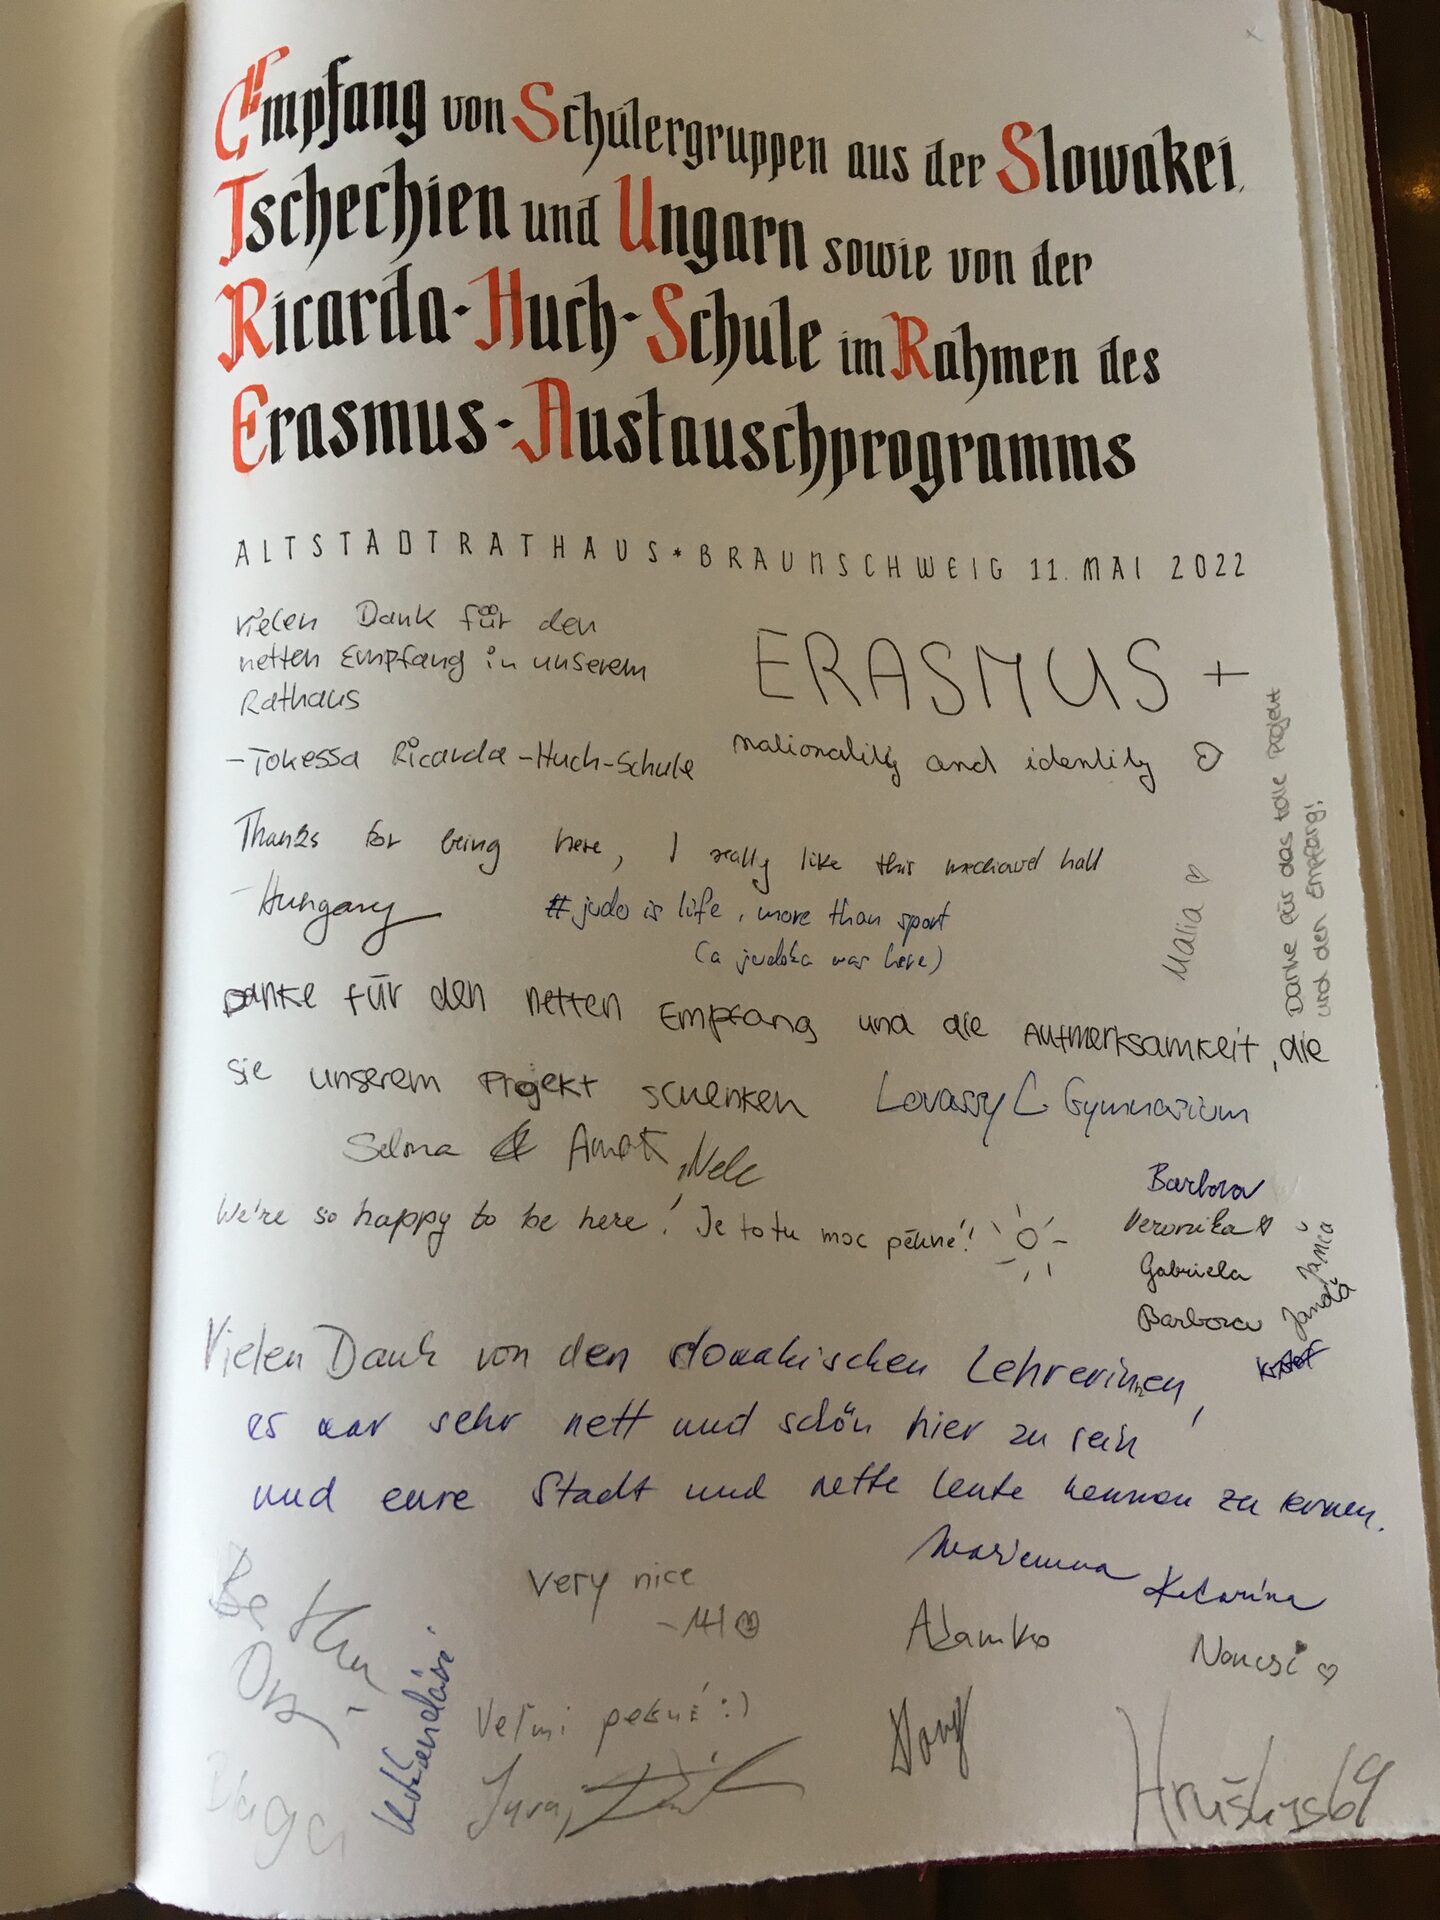 Empfang von Schülergruppen aus der Slowakei,
Tschechien und Ungarn sowie von der
Ricarda-Huch-Schule im Rahmen des
Erasmus-Austauschprogramms
ALTSTADTRATHAUS * BRAUNSCHWEIG 11. MAI 2022
Vielen Dank für den
netten Empfang in unserem
Rathaus
- Tokessa Ricarda-Huch-Schule
ERASMUS +
nationality and identity
Danke für das tolle Projekt
und den Empfang!
Malia
Thanks for being here, I really like this mediaval hall
- Hungary
# judo is life, more than sport
(a judoka was here)
Danke für den netten Empfang und die Aufmerksamkeit, die
sie unserem Projekt schenken
Lovassy L Gymnasium
Selma & , Nele
We're so happy to be here! Je to tu moc pěkné!
Barbora
Veronika
Gabriela
Barbora
Janča
Vielen Dank von den slowakischen Lehrerinnen,
es war sehr nett und schön hier zu sein
und eure Stadt und nette Leute kennen zu lernen.
Marianna Katarína
Very nice
Adamko
Noncsi
Veľmi pekné :)
Juraj